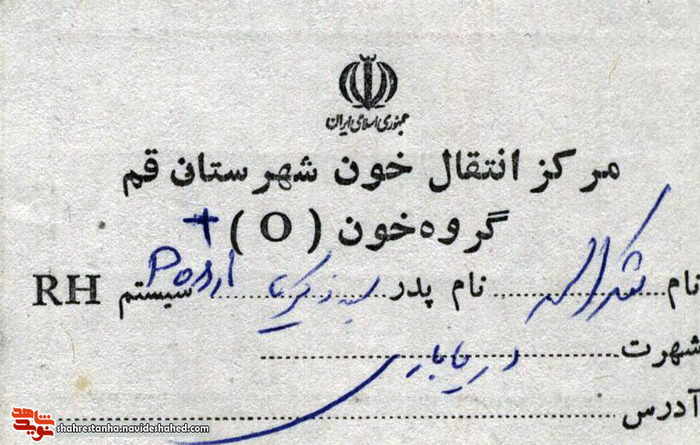 جمهوری اسلامی ایران
مرکز انتقال خون شهرستان قم
گروه خون ( O ) +
نام شکراله نام پدر سید زکریا سیستم RH Pos
شهرت دریاباری
آدرس
نوید شاهد
shahrestanha.navideshahed.com